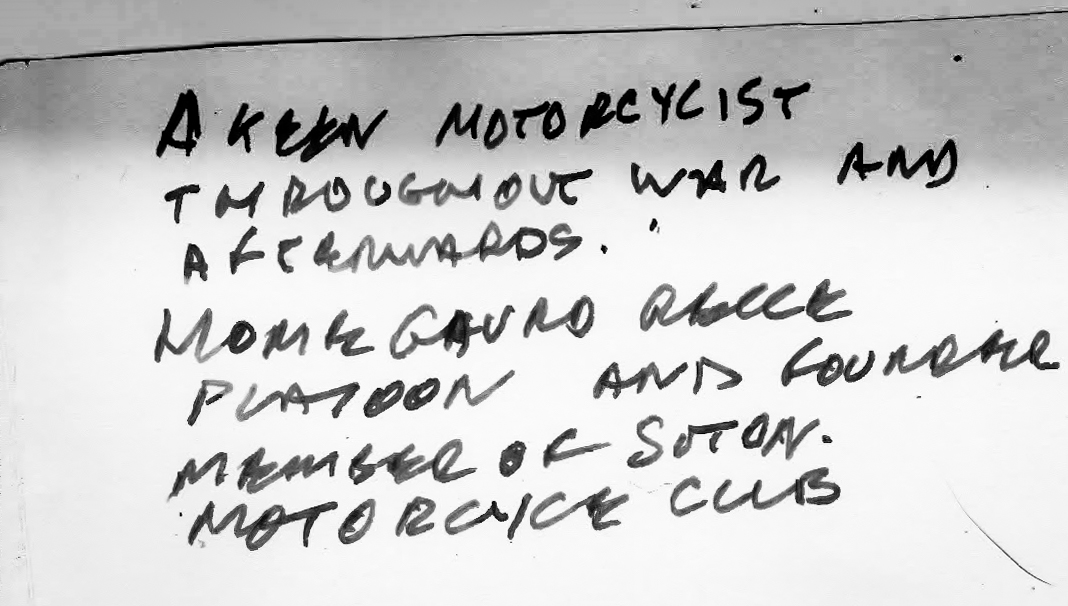 A KEEN MOTORCYCIST
THROUGHOUT WAR AND
AFTERWARDS.
HOME GAURD RECCE
PLATOON AND FOUNDER
MEMBER OF SUTON.
MOTORCYCLE CLUB